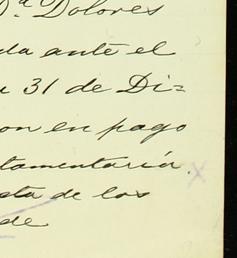 Dª. Dolores
da ante el
31 de Di=
on en pago
tamentaría.
eta de los
de